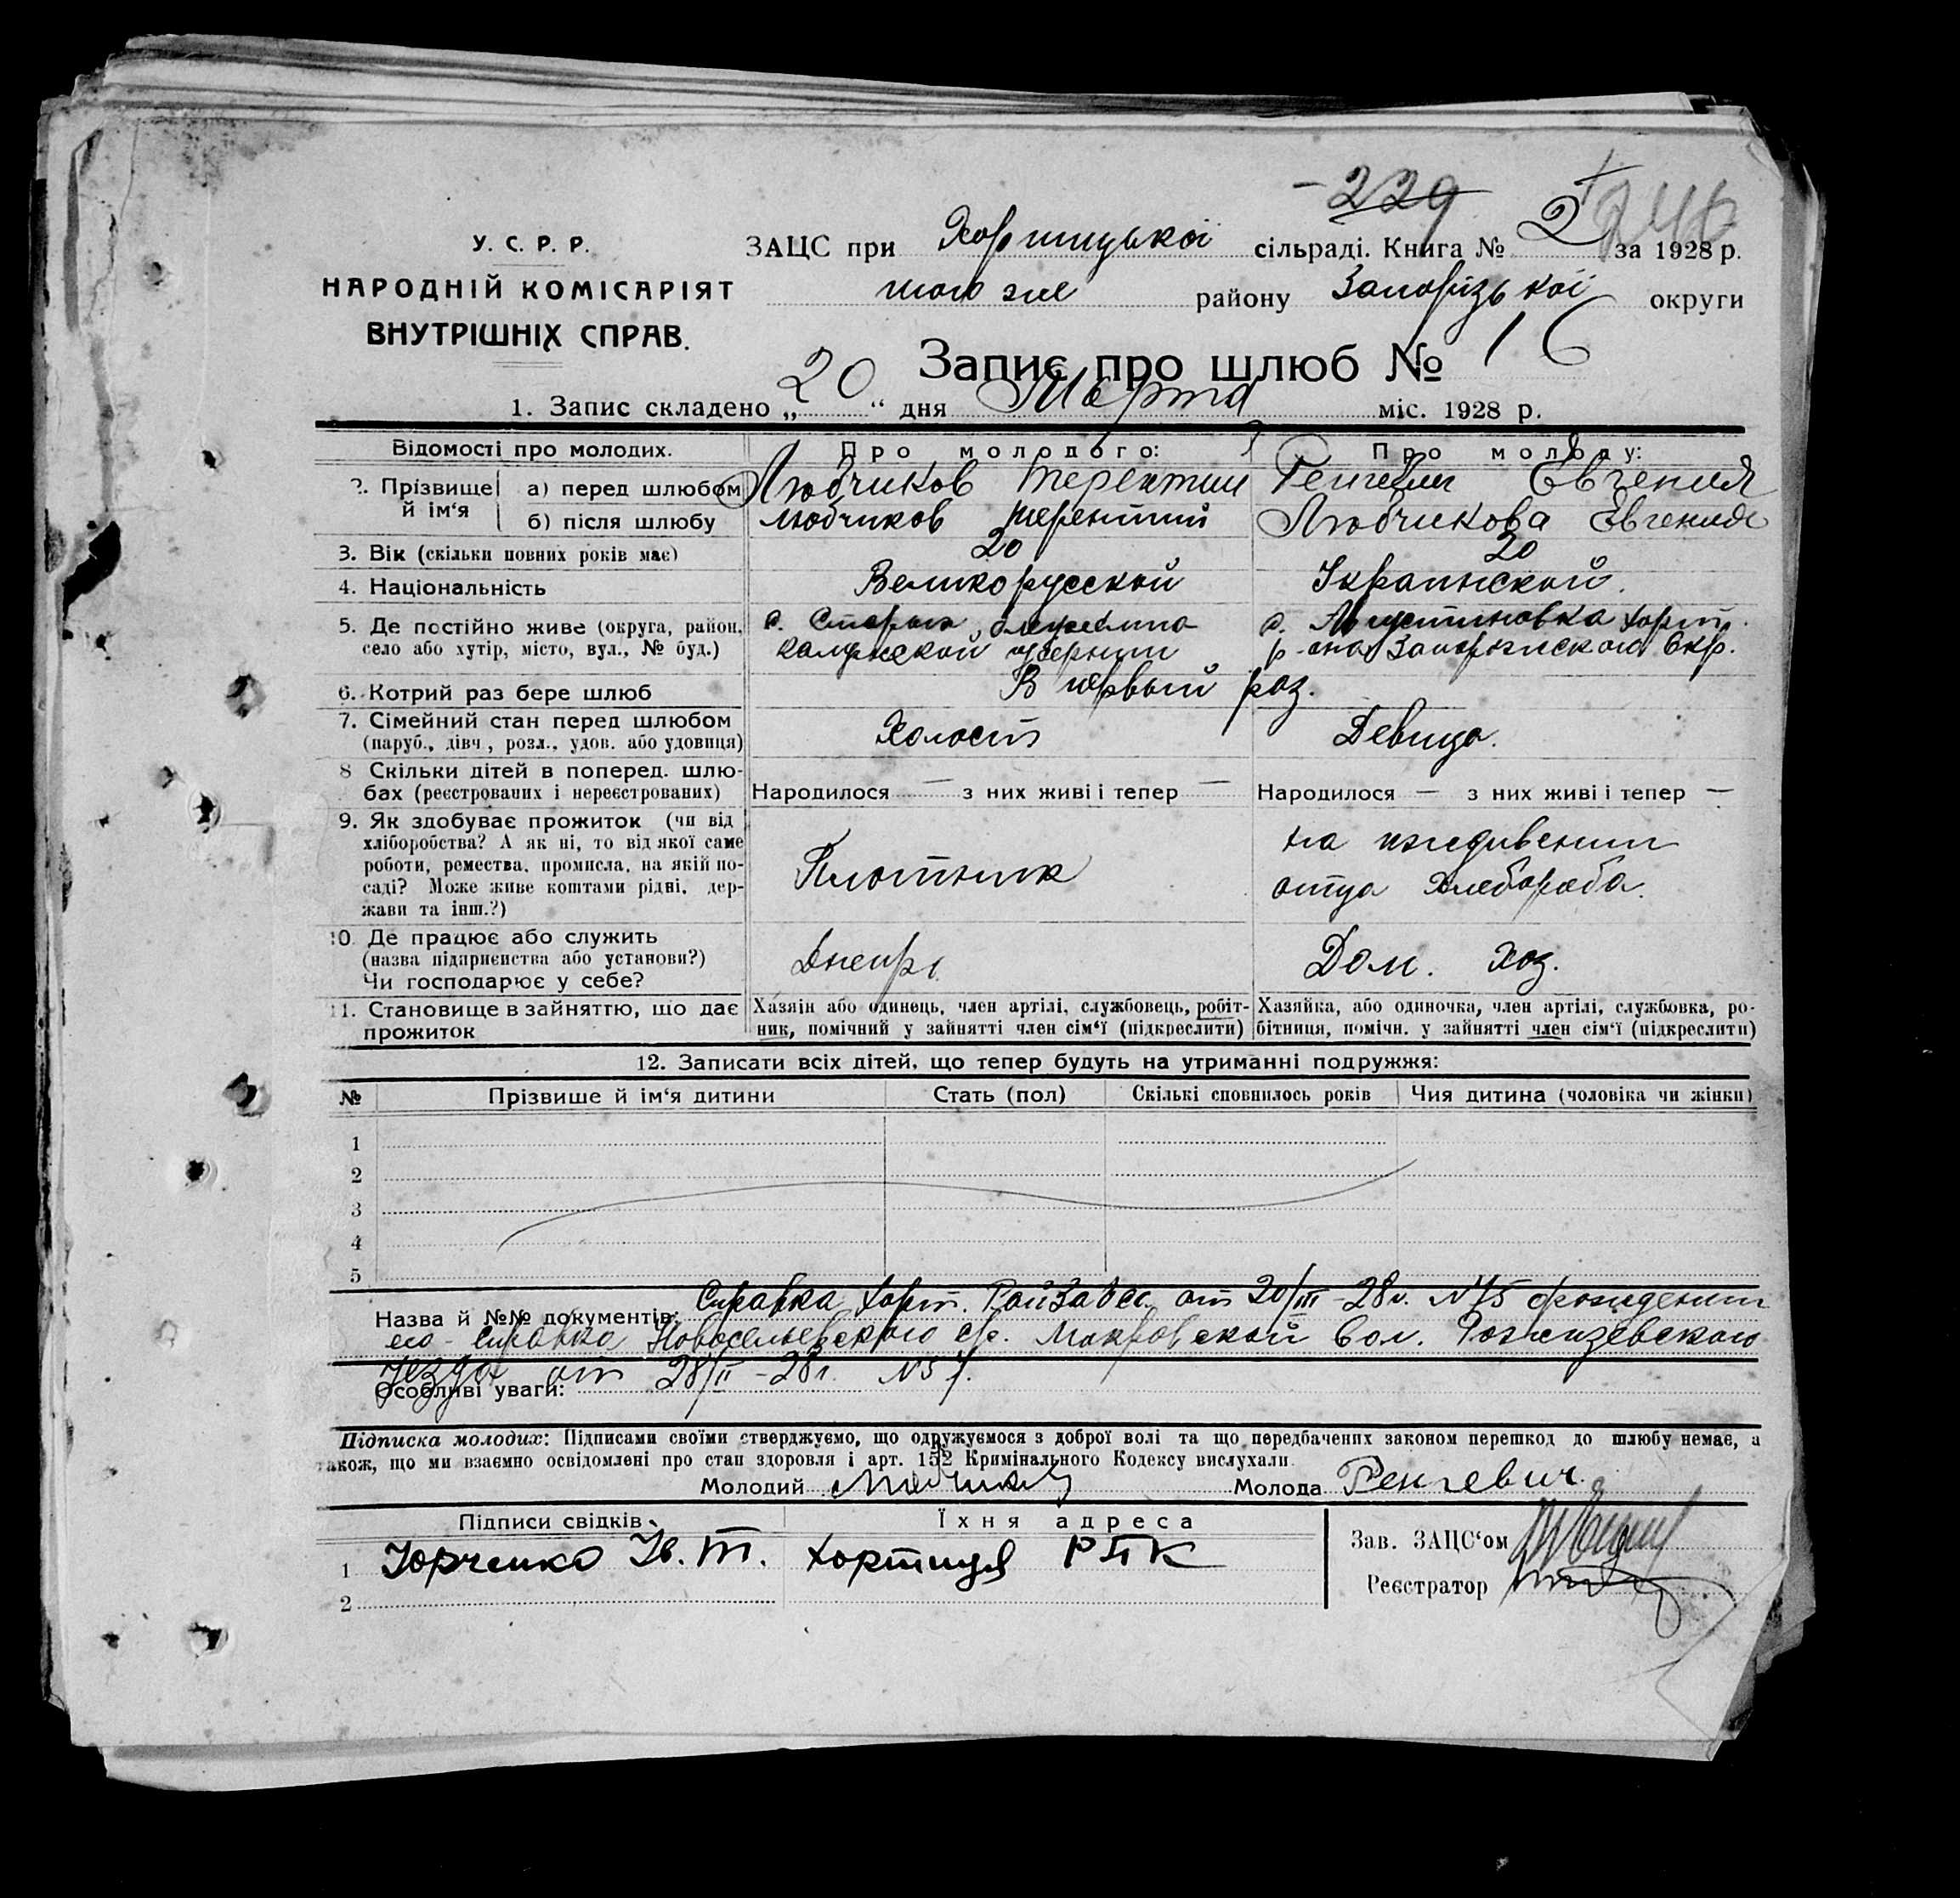 - 229 2
У. С. Р. Р. ЗАЦС при Хортицької сільраді. Книга № 2 за 1928 р.
НАРОДНІЙ КОМІСАРІЯТ того же району Запорізької округи
ВНУТРІШНІХ СПРАВ.
Запис про шлюб № 16
1. Запис складено „ 20 “ дня Марта міс. 1928 р.
Відомості про молодих. Про молодого: Про молоду:
2. Прізвище й ім‘я а) перед шлюбом Любчиков Терентий Евгения
б) після шлюбу Любчиков Терентий Любчикова Евгения
3. Вік (скільки повних років має) 20 20
4. Національність Великорусской Украинской.
5. Де постійно живе (округа, район, с. Старая с. Августиновка Хорт.
село або хутір, місто, вул., № буд.) Калужской губернии р-она Запорожского Окр.
6. Котрий раз бере шлюб В первый раз.
7. Сімейний стан перед шлюбом Холост Девица.
(паруб., дівч., розл., удов. або удовиця)
8 Скільки дітей в поперед. шлю-
бах (реєстрованих і нереєстрованих) Народилося — з них живі і тепер — Народилося — з них живі і тепер —
9. Як здобуває прожиток (чи від на иждивении
хліборобства? А як ні, то від якої саме
роботи, ремества, промисла, на якій по- Плотник отца хлебороба.
саді? Може живе коштами рідні, дер-
жави та інш.?)
10. Де працює або служить
(назва підприєнства або установи?) Днепр. Дом. хоз.
Чи господарює у себе?
11. Становище в зайняттю, що дає Хазяін або одинець, член артілі, службовець, робіт- Хазяйка, або одиночка, член артілі, службовка, ро-
прожиток ник, помічний у зайнятті член сім‘ї (підкреслити) бітниця, помічн. у зайнятті член сім‘ї (підкреслити)
12. Записати всіх дітей, що тепер будуть на утриманні подружжя:
№ Прізвише й ім‘я дитини Стать (пол) Скількі сповнилось років Чия дитина (чоловіка чи жінки)
1
2
3
4
5
Назва й №№ документів: Справка Хорт. РайЗАГС. от 20/III-28г. №75 о рождении
его - справка Новосельевского с/с. Макровской Вол.
уезда от 28/II-28г. №57.
Особливі уваги:
Підписка молодих: Підписами своїми стверджуємо, що одружуємося з доброї волі та що передбачених законом перешкод до шлюбу немає, а
також, що ми взаємно освідомлені про стан здоровля і арт. 152 Кримінального Кодексу вислухали.
Молодий Любчиков Молода Ренгевич
Підписи свідків Їхня адреса Зав. ЗАЦС‘ом
1 Юрченко Ів. Т. Хортиця РПК
Реєстратор
2